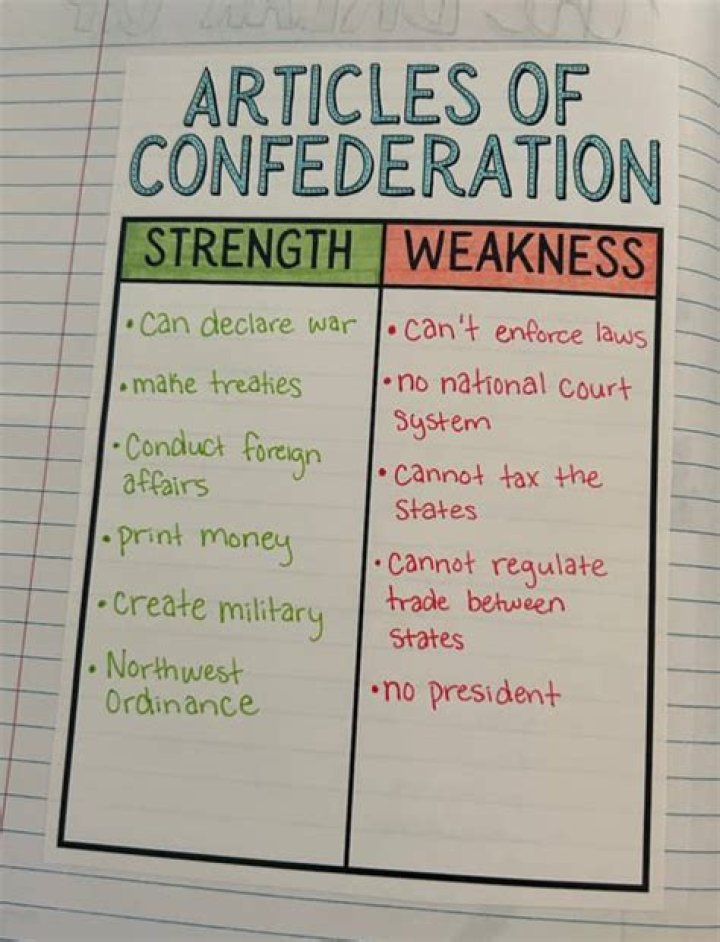 ARTICLES OF
CONFEDERATION
STRENGTH
• Can declare war
• make treaties
• Conduct foreign
affairs
• print money
• Create military
• Northwest
Ordinance
WEAKNESS
• can't enforce laws
• no national court
System
• Cannot tax the
States
• Cannot regulate
trade between
States
• no president